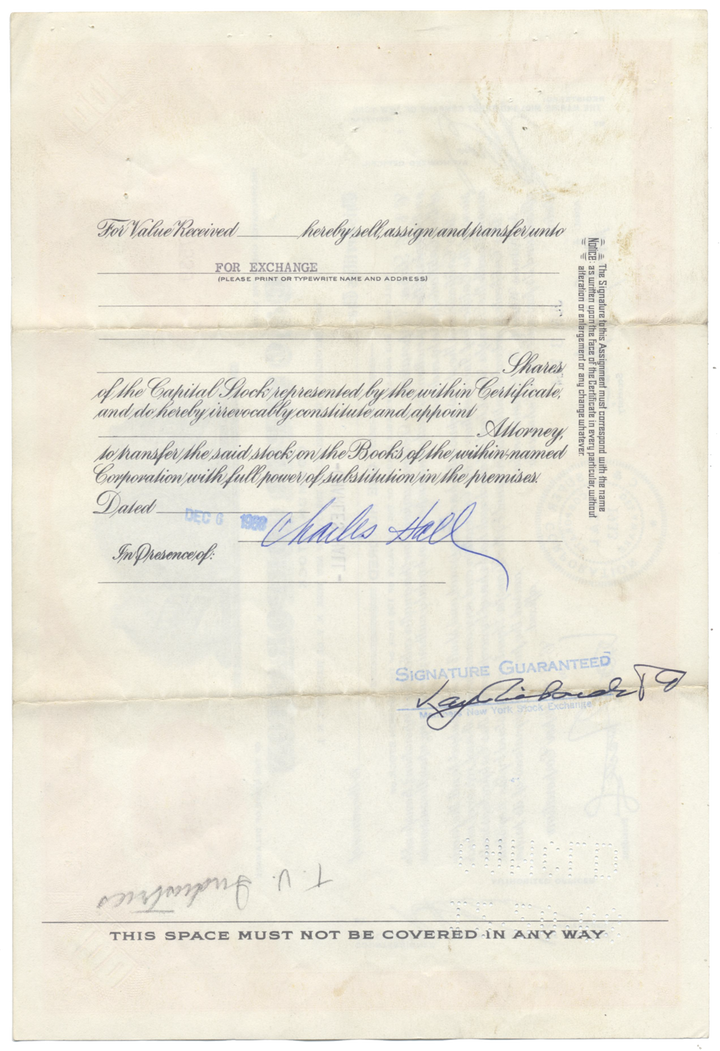 For Value Received hereby sell, assign and transfer unto
FOR EXCHANGE
(PLEASE PRINT OR TYPEWRITE NAME AND ADDRESS)
Shares
of the Capital Stock represented by the within Certificate,
and do hereby irrevocably constitute and appoint
Attorney,
to transfer the said stock on the Books of the within named
Corporation with full power of substitution in the premises.
Dated DEC 6
Charles Hall
In Presence of:
Notice: The Signature to this Assignment must correspond with the name
as written upon the face of the Certificate in every particular, without
alteration or enlargement or any change whatever.
SIGNATURE GUARANTEED
New York Stock Exchange
T. V. Industries
THIS SPACE MUST NOT BE COVERED IN ANY WAY